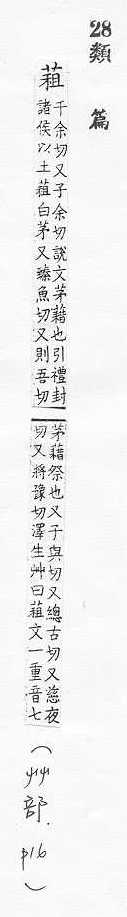 28類　篇
蒩
千余切又子余切說文茅藉也引禮封
諸侯以土蒩白茅又臻魚切又則吾切
茅藉祭也又子與切又總古切又慈夜
切又將豫切澤生艸曰蒩文一重音七
(艸部. p16)